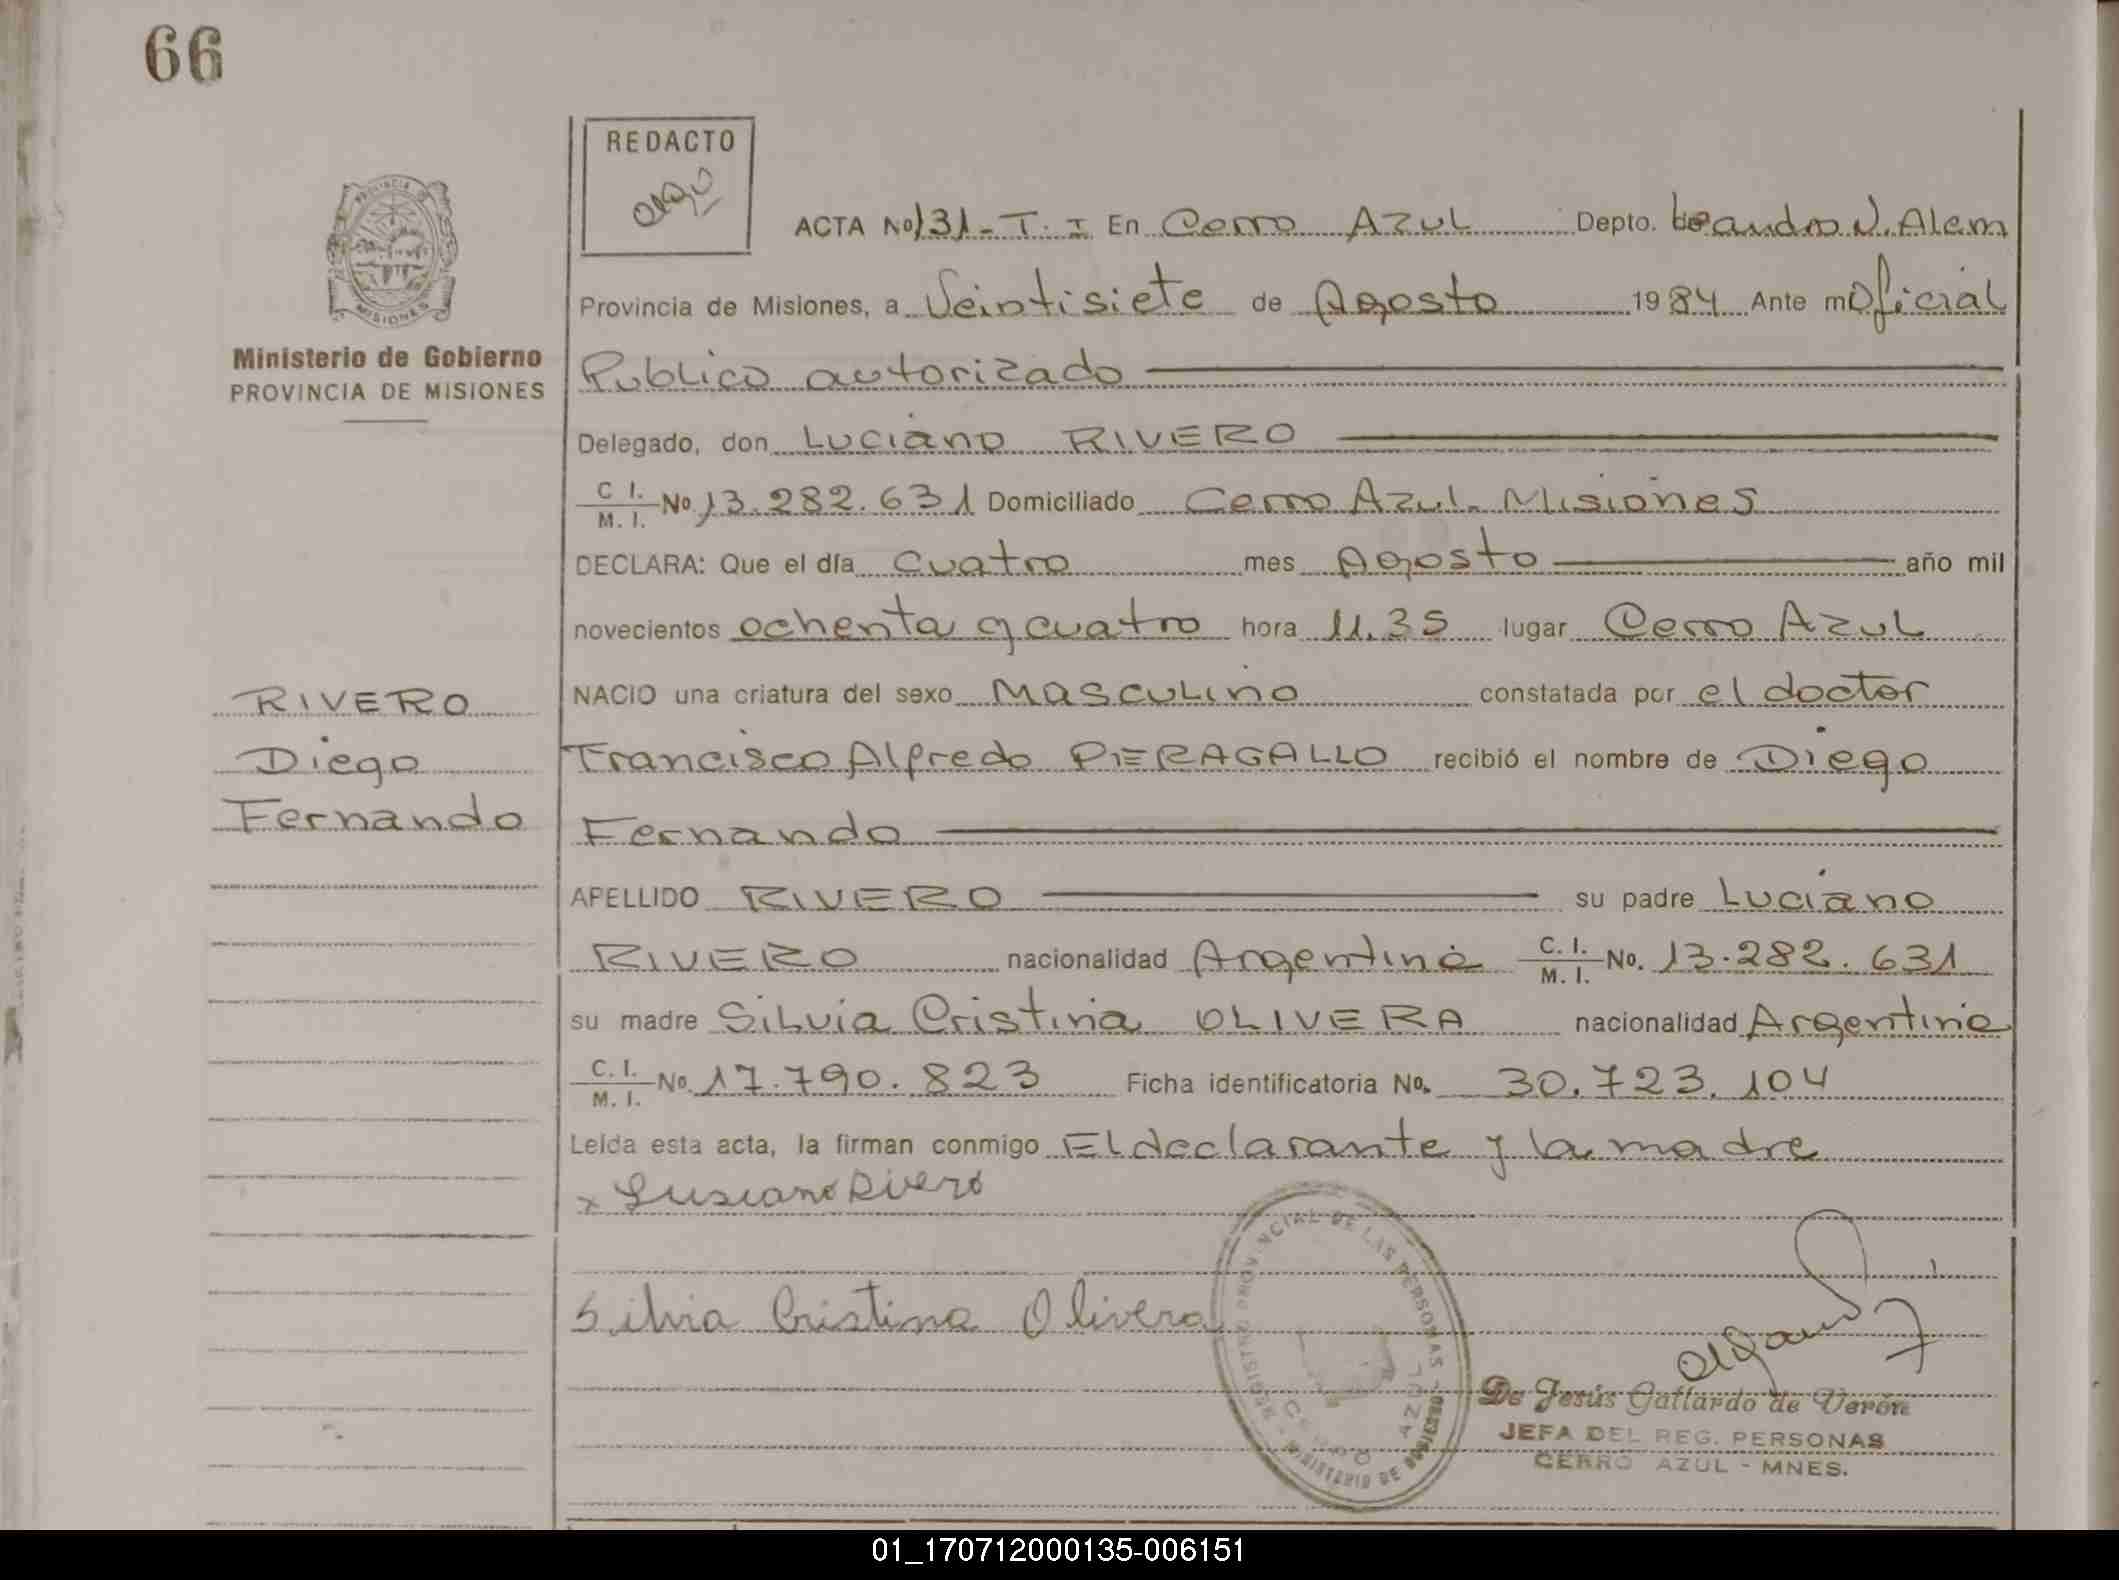 66
REDACTO
ACTA No 131 - T. I En Cerro AZUL Depto. Leandro N. Alem
PROVINCIA DE
MISIONES
Provincia de Misiones, a Veintisiete de Agosto 1984 Ante mi Oficial
Ministerio de Gobierno
PROVINCIA DE MISIONES
Publico autorizado
Delegado, don Luciano RIVERO
C I. / M. I. No. 13.282.631 Domiciliado Cerro Azul. Misiones
DECLARA: Que el día cuatro mes Agosto año mil
novecientos ochenta y cuatro hora 11.35 lugar Cerro AZUL
RIVERO
Diego
Fernando
NACIO una criatura del sexo Masculino constatada por el doctor
Francisco Alfredo PIERAGALLO recibió el nombre de Diego
Fernando
APELLIDO RIVERO su padre Luciano
RIVERO nacionalidad Argentina C. I. / M. I. No. 13.282.631
su madre Silvia Cristina OLIVERA nacionalidad Argentina
C. I. / M. I. No. 17.790.823 Ficha identificatoria No. 30.723.104
Leída esta acta, la firman conmigo El declarante y la madre
x Lusiano Rivero
Silvia Cristina Olivera
REGISTRO PROVINCIAL DE LAS PERSONAS
CERRO AZUL
MINISTERIO DE GOBIERNO
De Jesús Gallardo de Verón
JEFA DEL REG. PERSONAS
CERRO AZUL - MNES.
01_170712000135-006151